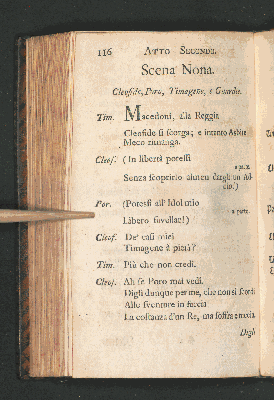 116 ATTO SECONDO.
Scena Nona.
Cleofide, Poro, Timagene, e Guardie.
Tim. Macedoni, alla Reggia
Cleofide si scorga; e intanto Asbite
Meco rimanga.
Cleof. (In libertà potessi
a parte.
Senza scoprirlo almen dargli un Addio.)
Por. (Potessi all' Idol mio
a parte.
Libero favellar!)
Cleof. De' casi miei
Timagene à pietà?
Tim. Più che non credi.
Cleof. Ah se Poro mai vedi,
Digli dunque per me, che non si scordi
Alle sventure in faccia
La costanza d'un Re, ma soffra e taccia.
Digli